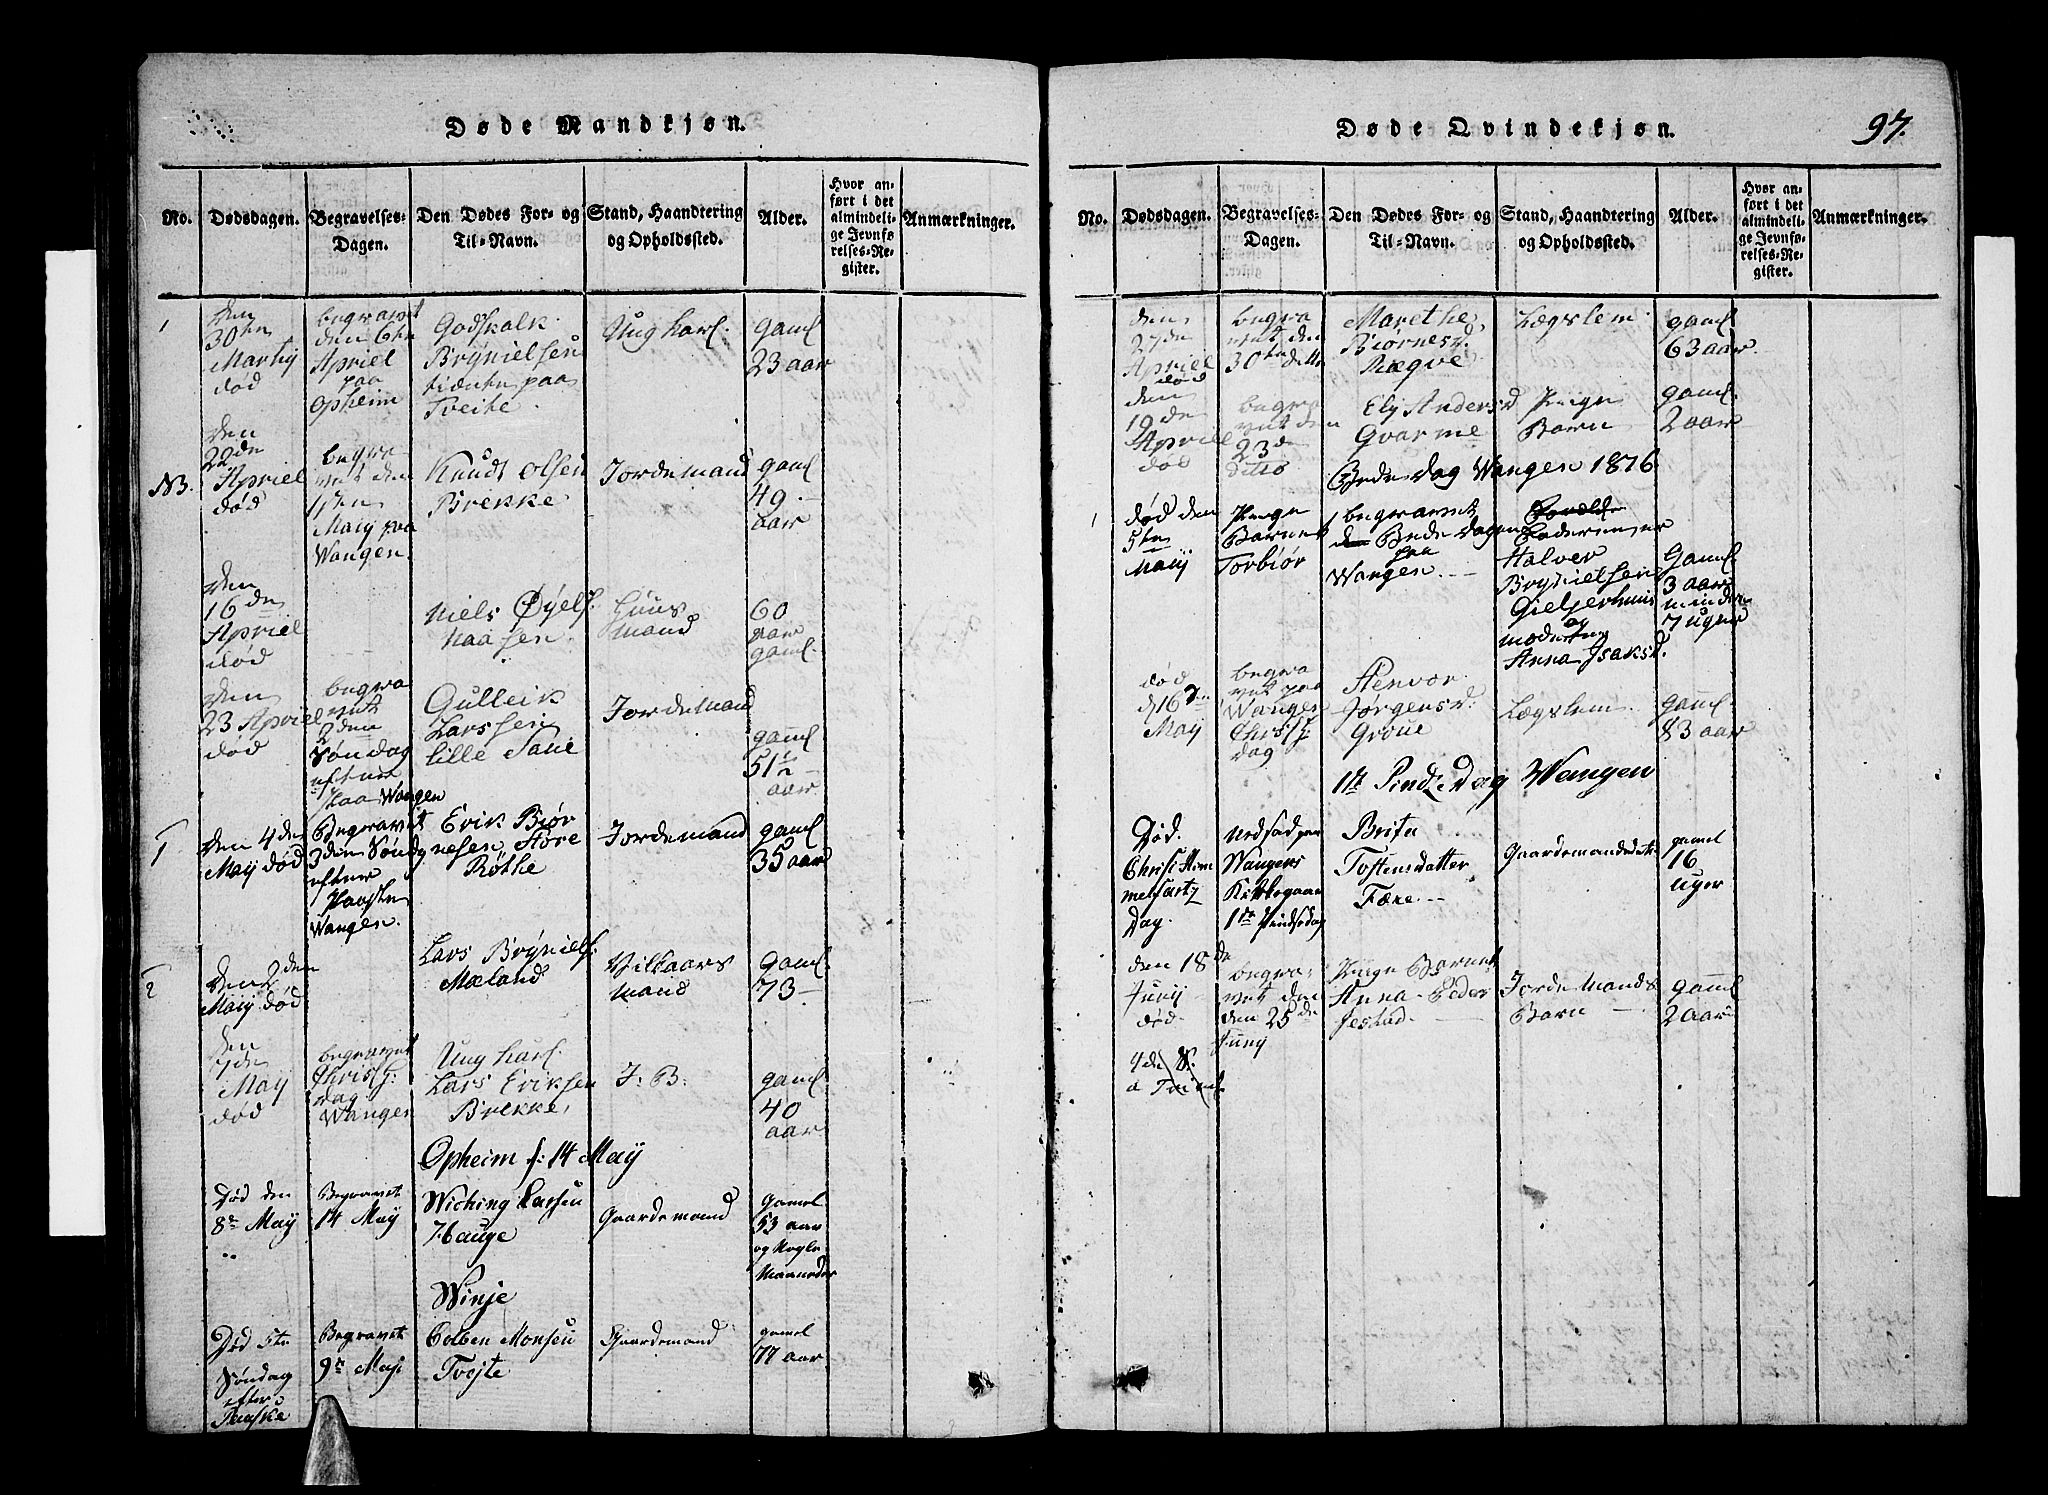 Døde Mandkjøn.
No.
Dødsdagen.
Begravelses-
Dagen.
Den Dødes For- og
Til-Navn.
Stand, Haandtering
og Opholdssted.
Alder.
Hvor an-
ført i det
almindeli-
ge Jevnfø
relses-Re-
gister.
Anmærkninger.
1
Den
30te
Martij
død
begravet
den 6te
Apriel
paa
Opheim
Godskalk
Brynielsen
paa
Tveite
Ung karl.
gaml
23 aar
NB.
den
22de
Apriel
død
begra-
vet den
Maij paa
Wangen.
Knudt Olsen
Brekke
Jordemand
gaml
49.
aar
Den
16de
Apriel
død
Niels Øyels.
Naasen.
Huus
mand
60
aar
gaml.
Den
23 Apriel
død
begra
vet
2den
Søndag
efter
paa Wangen
Gulleik
Larssen
lille Saue
Jordemand
gaml
51 1/2
aar
1
Den 4de
Maij død
Begravet
3den Søndg
efter
Paaske
Wangen.
Erik Biør
nesen Store
Røthe
Jordemand
gaml
35 aar
2
Den 2den
Maij død
Lars Bryniels:
Mæland
Vilkaars
mand
gaml.
73 -
Den
7de
Maij
død
begravet
Christi H:
dag
Wangen
Ung karl.
Lars Eriksen
Brekke,
J: B:
gaml
40
aar
Opheim d: 14 Maij
Død den
8de Maij
Begravet
14 Maij
Wiching Larsen
Hauge
Gaardemand
Gamel
53 aar
og Nogle
Maaneder
Winje
Død 5te
Søndag
efter
Paaske
Begravet
9de Maji
Colben Monsen
Tvejte
Gaardemand
gamel
77 aar
Døde Qvindekjøn.
97.
No.
Dødsdagen.
Begravelses-
Dagen.
Den Dødes For- og
Til-Navn.
Stand, Haandtering
og Opholdssted.
Alder.
Hvor an-
ført i det
almindeli-
ge Jevnfø-
relses-Re-
gister.
Anmærkninger.
den
27de
Apriel
død
begra
vet den
30te ditto
Marethe
Biørnesd.
Rægve
Lægslem
gaml
63 aar.
den
19de
Apriel
død
begra
vet den
23de
ditto
Ely Andersd
Qvarme
Pige
Barn
gaml.
2 aar
Bede dag Wangen 1816
1
død den
5te
Maij
Pige
Barnet
Torbiør
begravet
Bede dagen
paa
Wangen.
Faderen er
Halver
Brynielsen
Gielgerhuus
og
moderen
Anna Isaksd.
Gaml
3 aar
mindre
7 uger
død
d 16de
Maij
begra
vet paa
Wangen
Christi H:
dag
Stenvor
Jørgensd.
Groue
Lægslem.
gaml
83 aar
1te Pindse Dag Wangen
Død.
Christi Him
melfartz
Dag.
Nedsadt paa
Wangens
Kirkegaar
1te Pindsedag
Brita
Tostensdatter
Fære.
Gaardemandsdatr
gamel
16
uger
den 18de
Junij
død
begra-
vet den
den 25de
Junij
Pige Barnet
Anna Peder
Jestad.
Jorde Mands
Barn
gaml
2 aar